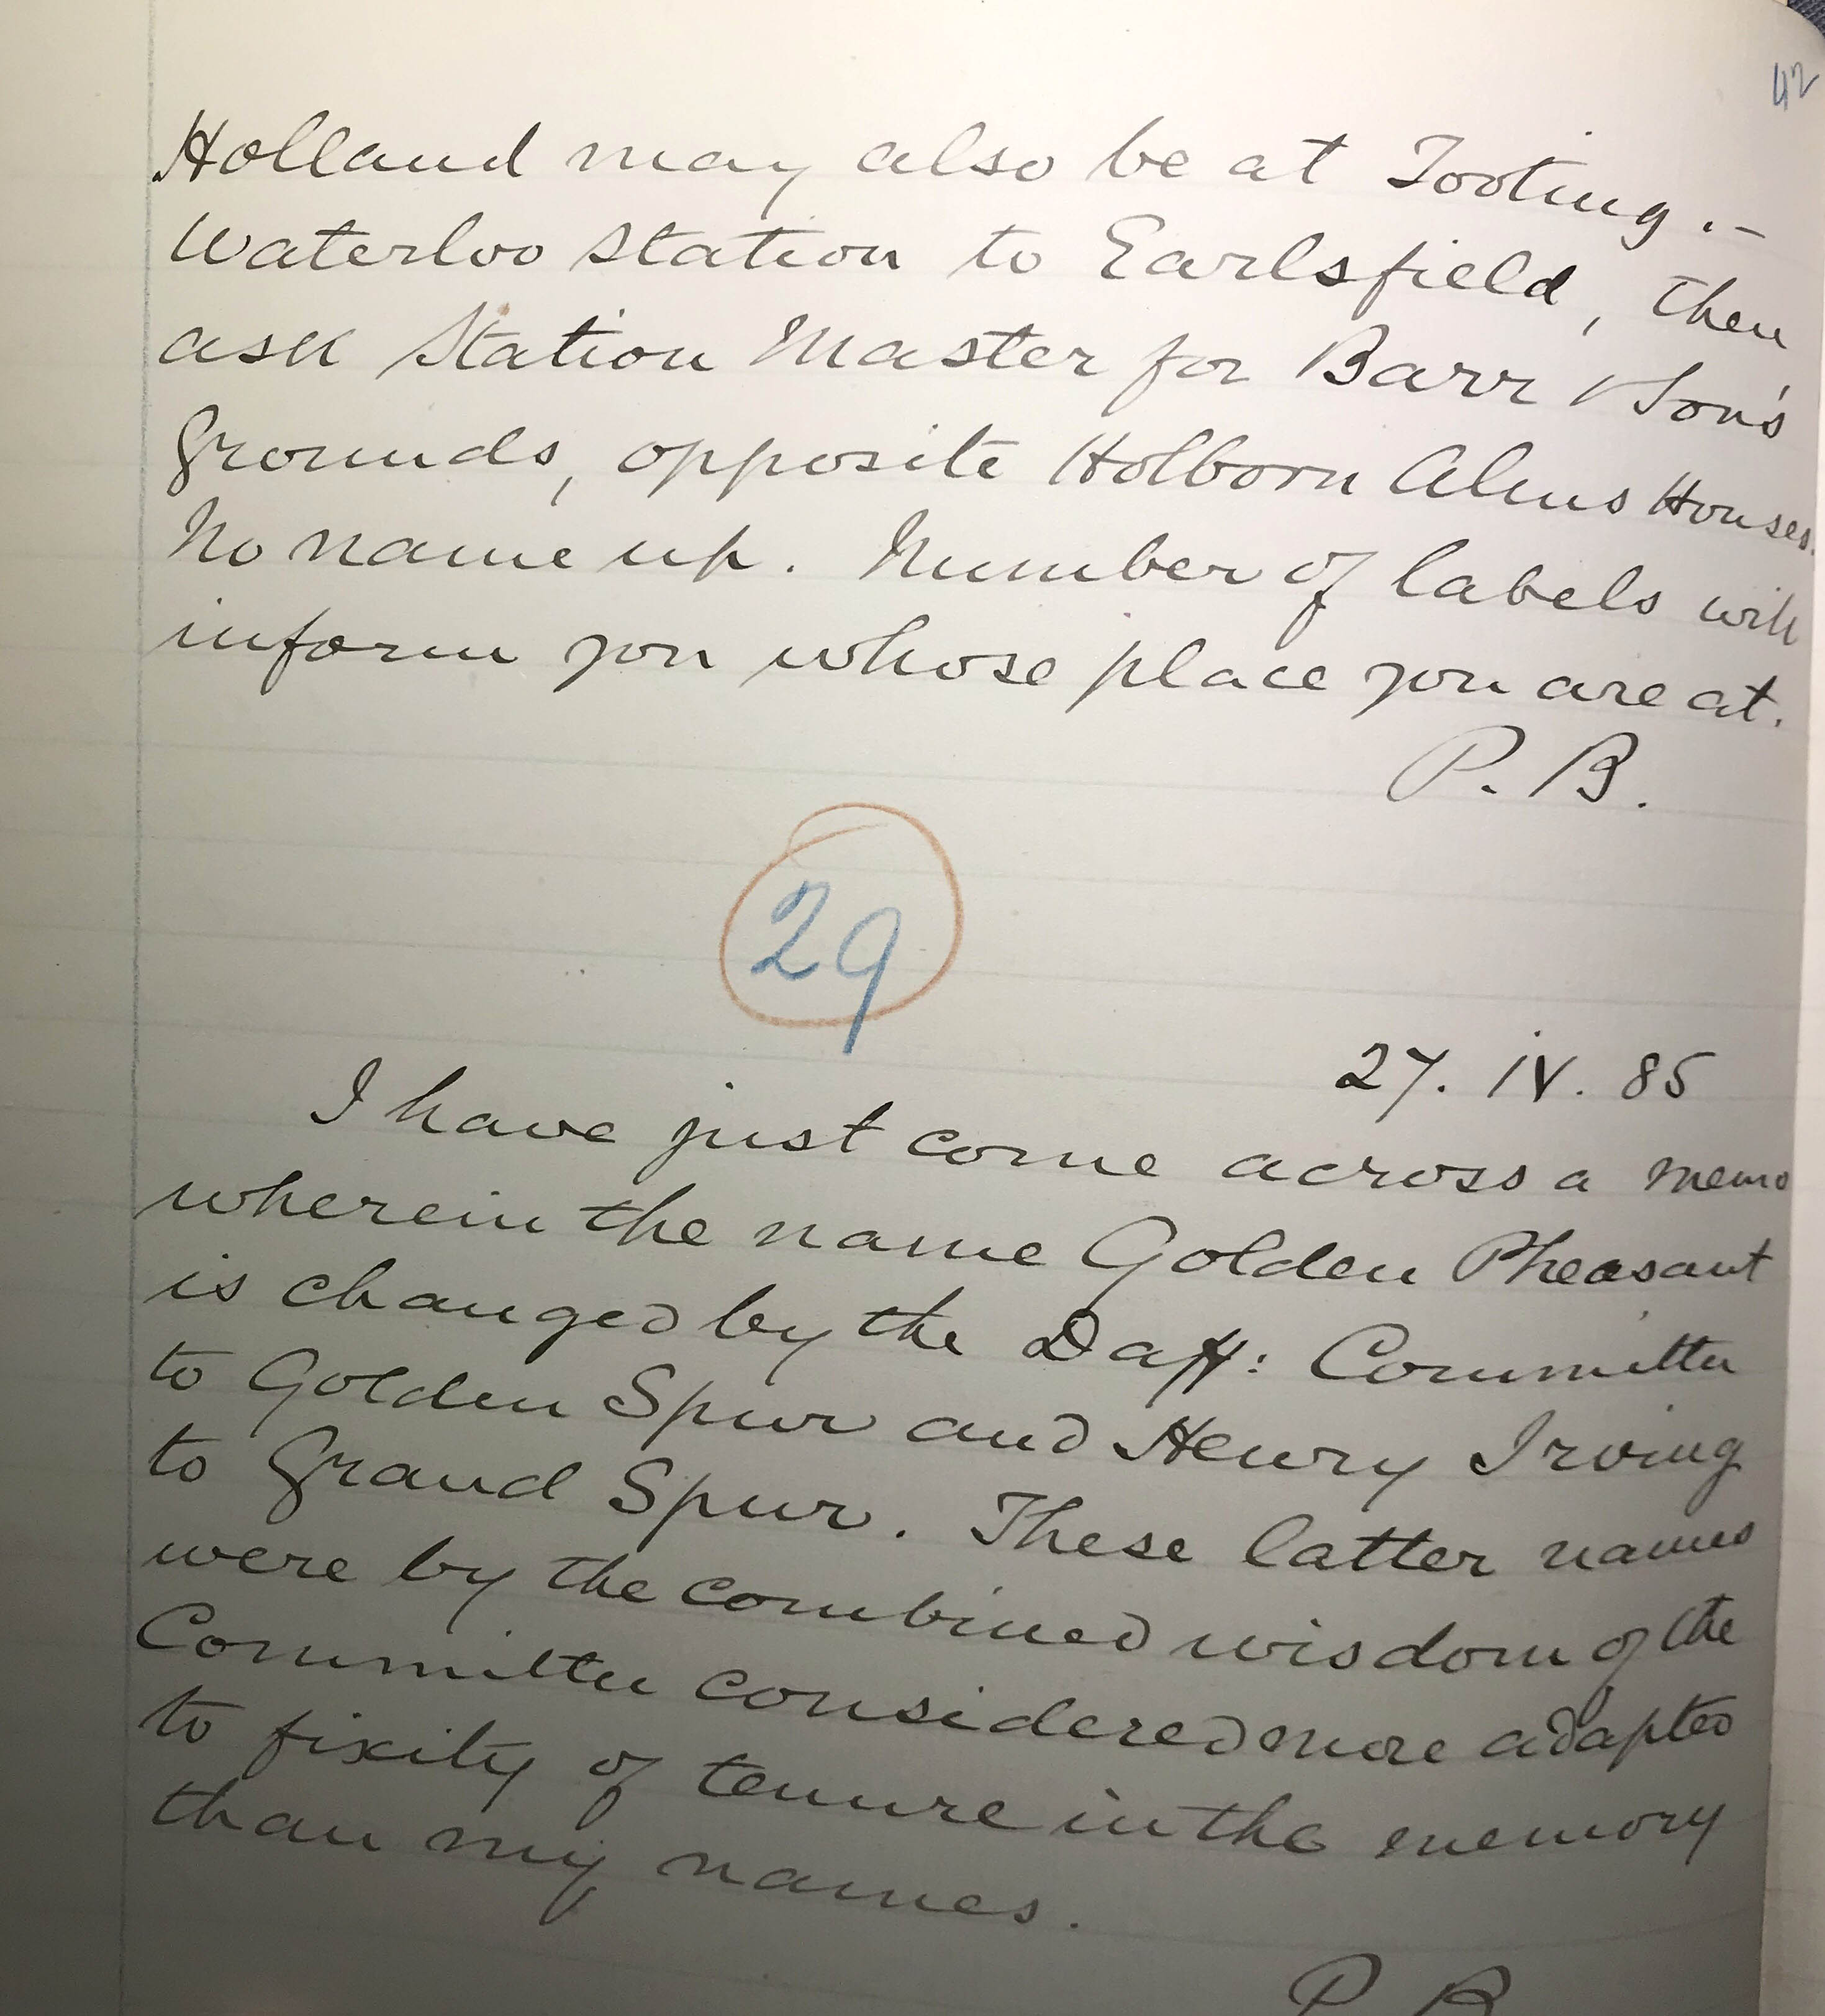 42
Holland may also be at Tooting.–
Waterloo Station to Earlsfield, then
ask Station Master for Barr & Son's
Grounds, opposite Holborn Alms Houses.
No name up. Number of labels will
inform you whose place you are at.
P. B.
29
27. iv. 85
I have just come across a memo
wherein the name Golden Pheasant
is changed by the Daff: Committee
to Golden Spur and Henry Irving
to Grand Spur. These latter names
were by the combined wisdom of the
Committee considered more adapted
to fixity of tenure in the memory
than my names.
P. B